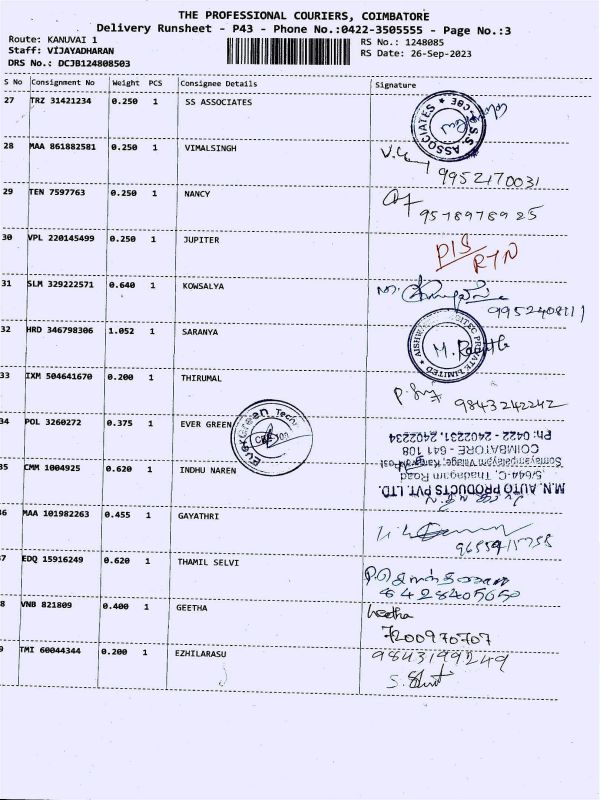 THE PROFESSIONAL COURIERS, COIMBATORE
Delivery Runsheet - P43 - Phone No.:0422-3505555 - Page No.:3
Route: KANUVAI 1
RS No.: 1248085
Staff: VIJAYADHARAN
RS Date: 26-Sep-2023
DRS No.: DCJB124808503
S No Consignment No Weight PCS Consignee Details Signature
27 TRZ 31421234 0.250 1 SS ASSOCIATES S.S. ASSOCIATES ★ CBE ★
28 MAA 861882581 0.250 1 VIMALSINGH
9952170031
29 TEN 7597763 0.250 1 NANCY
9578976925
30 VPL 220145499 0.250 1 JUPITER P/S
RTN
31 SLM 329222571 0.640 1 KOWSALYA
9952408111
32 HRD 346798306 1.052 1 SARANYA PRIVATE LIMITED ★
33 IXM 504641670 0.200 1 THIRUMAL
9843242242
34 POL 3260272 0.375 1 EVER GREEN Evergreen Tech
35 CMM 1004925 0.620 1 INDHU NAREN
M.N. AUTO PRODUCTS PVT. LTD.
5/644-C, Thadagam Road
Somayampalayam Village, Post
COIMBATORE - 641 108
Ph: 0422 - 2402231, 2402234
36 MAA 101982263 0.455 1 GAYATHRI
37 EDQ 15916249 0.620 1 THAMIL SELVI
6428405650
8 VNB 821809 0.400 1 GEETHA Geetha
7200970707
9 TMI 60044344 0.200 1 EZHILARASU 9843199249